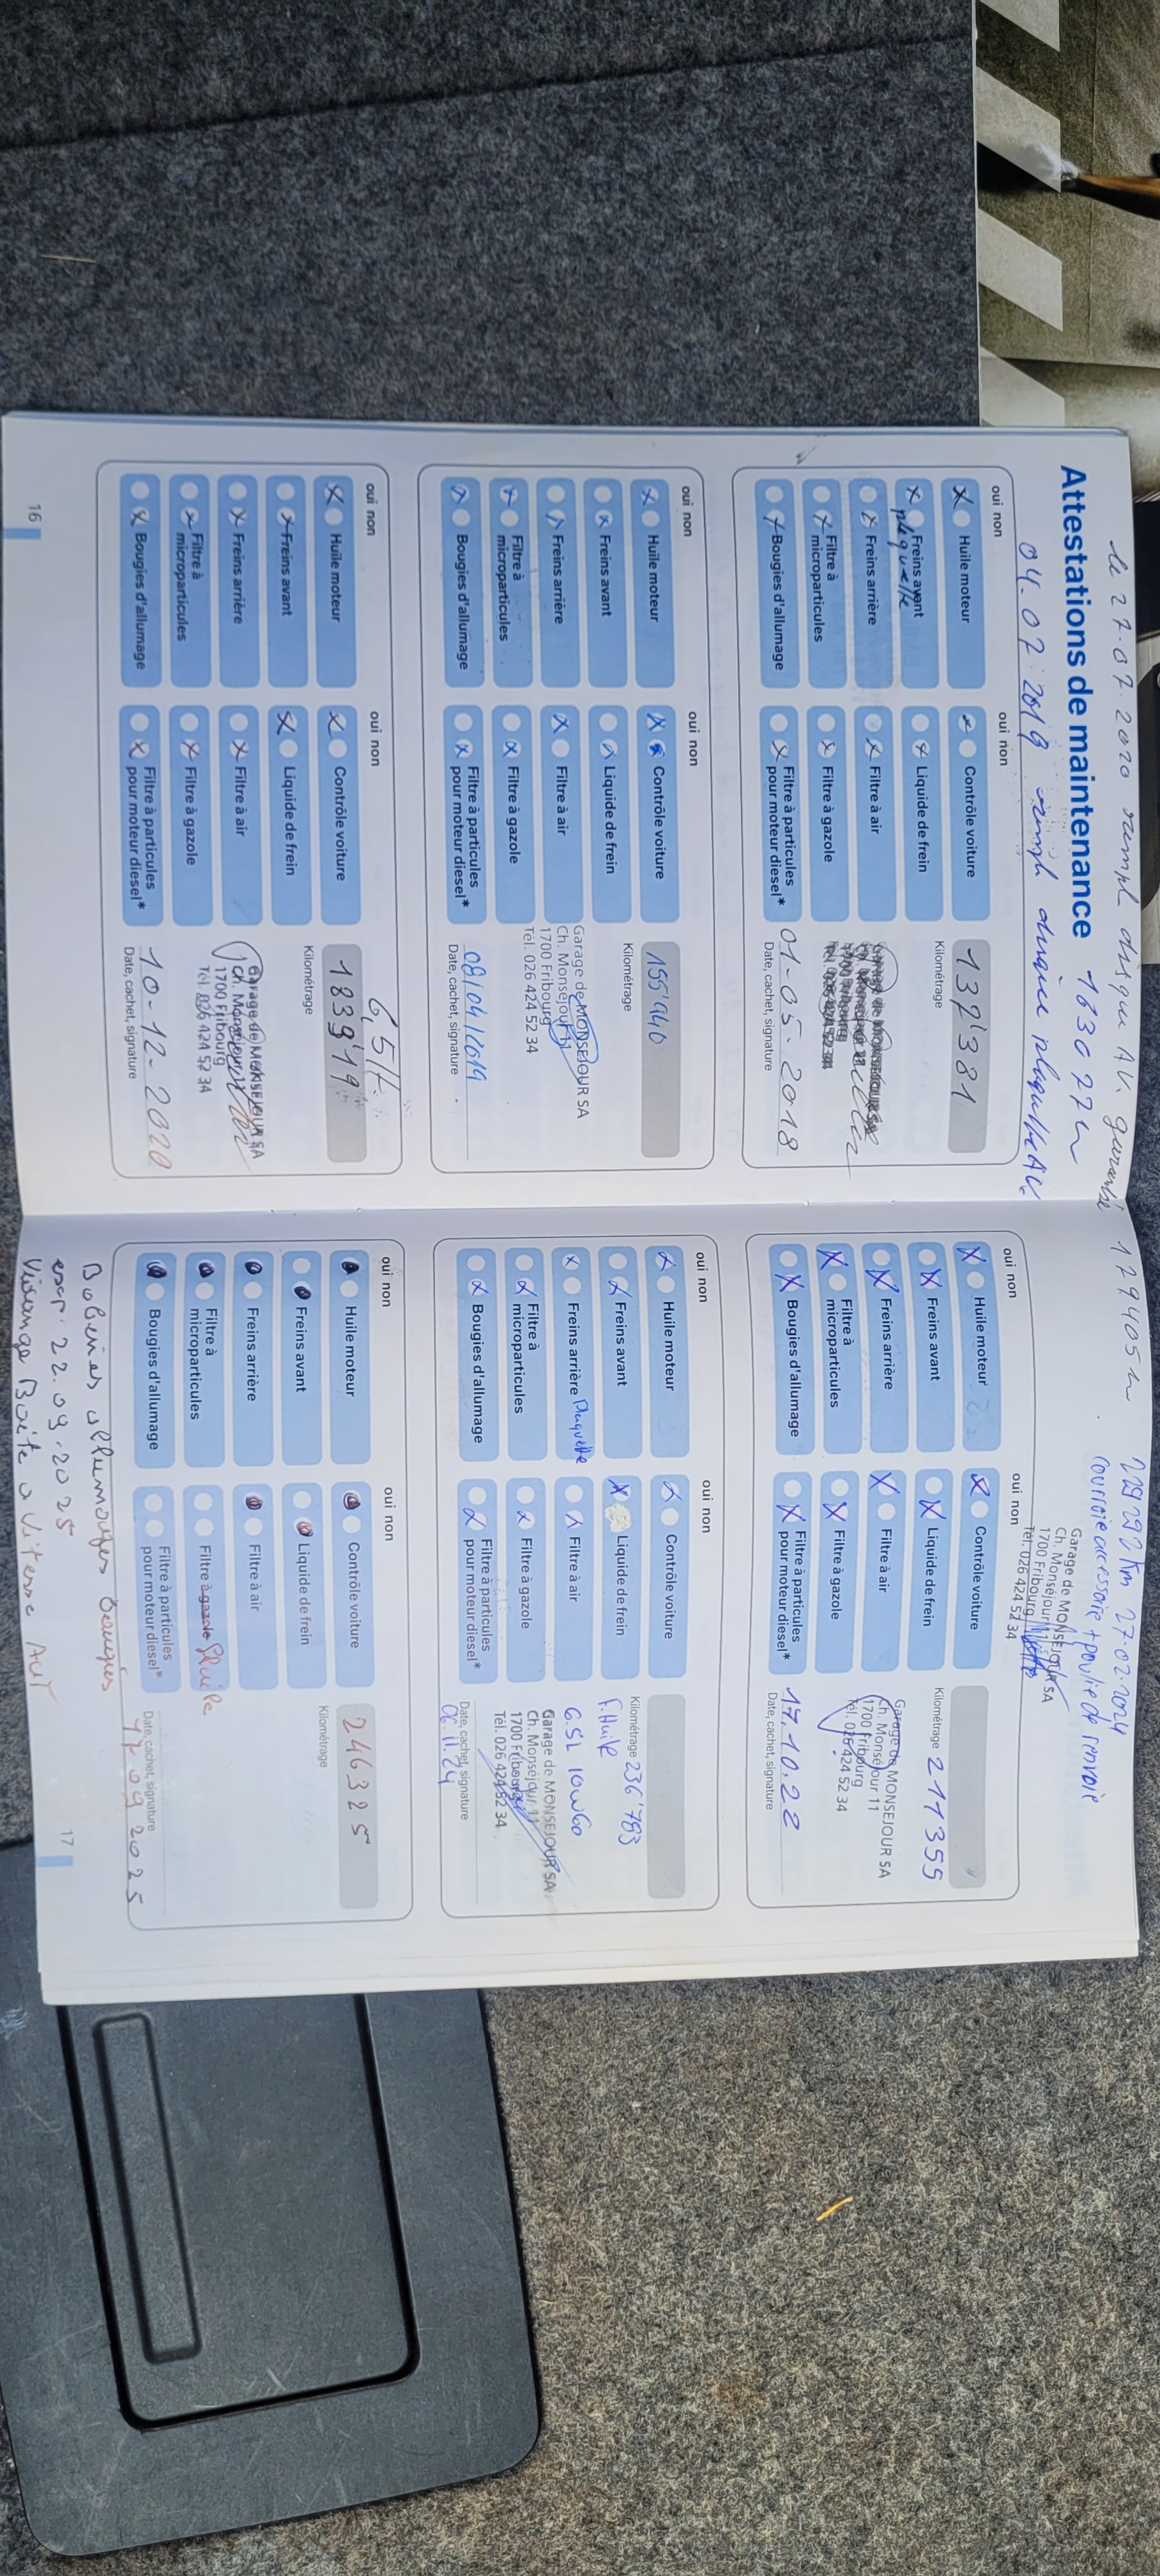 le 27.07.2020 rempl disque AV.
Attestations de maintenance
163027 km
04-07-2019 rempl disque plaquette AV.
oui non
oui non
Huile moteur
Contrôle voiture
132'381
Freins avant
plaquette
Liquide de frein
Kilométrage
Freins arrière
Filtre à air
Filtre à
microparticules
Filtre à gazole
Bougies d'allumage
Filtre à particules
pour moteur diesel*
01-05-2018
Date, cachet, signature
oui non
oui non
Huile moteur
Contrôle voiture
155'940
Freins avant
Liquide de frein
Kilométrage
Freins arrière
Filtre à air
Garage de MONSEJOUR SA
Ch. Monséjour 11
1700 Fribourg
Tél. 026 424 52 34
Filtre à
microparticules
Filtre à gazole
Bougies d'allumage
Filtre à particules
pour moteur diesel*
08/04/2019
Date, cachet, signature
6,5 l
oui non
oui non
Huile moteur
Contrôle voiture
183919
Freins avant
Liquide de frein
Kilométrage
Freins arrière
Filtre à air
Garage de MONSEJOUR SA
Ch. Monséjour 11
1700 Fribourg
Tél. 026 424 52 34
Filtre à
microparticules
Filtre à gazole
Bougies d'allumage
Filtre à particules
pour moteur diesel*
10-12-2020
Date, cachet, signature
16
179405 km
229292 Km 27.02.2024
Courroie accessoire + poulie de renvoie
Garage de MONSEJOUR SA
Ch. Monséjour 11
1700 Fribourg
Tél. 026 424 52 34
oui non
oui non
Huile moteur
Contrôle voiture
Kilométrage 211355
Freins avant
Liquide de frein
Freins arrière
Filtre à air
Garage de MONSEJOUR SA
Ch. Monséjour 11
1700 Fribourg
Tél. 026 424 52 34
Filtre à
microparticules
Filtre à gazole
Bougies d'allumage
Filtre à particules
pour moteur diesel*
17.10.22
Date, cachet, signature
oui non
oui non
Huile moteur
Contrôle voiture
Kilométrage 236'783
Freins avant
Liquide de frein
F. Huile
Freins arrière Plaquette
Filtre à air
6.5L 10W60
Filtre à
microparticules
Filtre à gazole
Garage de MONSEJOUR SA
Ch. Monséjour 11
1700 Fribourg
Tél. 026 424 52 34
Bougies d'allumage
Filtre à particules
pour moteur diesel*
Date, cachet, signature
06.11.24
oui non
oui non
Huile moteur
Contrôle voiture
246325
Freins avant
Liquide de frein
Kilométrage
Freins arrière
Filtre à air
Filtre à
microparticules
Filtre à gazole
Bougies d'allumage
Filtre à particules
pour moteur diesel*
Date, cachet, signature
17 09 2025
Bobines allumages Bougies
22.09.2025
Vidange Boîte a Vitesse AUT
17